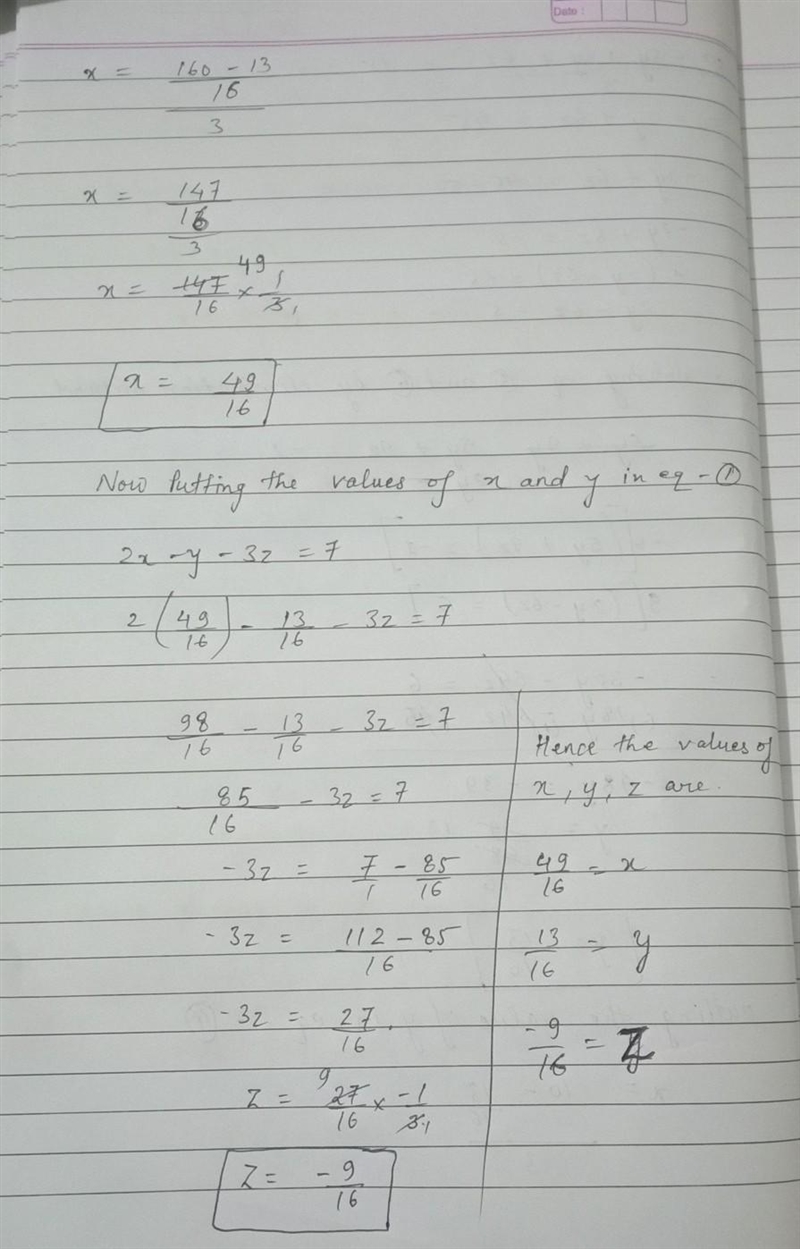 Date :
x = ((160 - 13)/16)/3
x = (147/16)/3
x = 147/16 × 1/3 49 1
x = 49/16
Now Putting the values of x and y in eq - ①
2x - y - 3z = 7
2(49/16) - 13/16 - 3z = 7
98/16 - 13/16 - 3z = 7
85/16 - 3z = 7
-3z = 7/1 - 85/16
-3z = (112 - 85)/16
-3z = 27/16
z = 27/16 × -1/3 9 1
z = -9/16
Hence the values of
x, y, z are.
49/16 = x
13/16 = y
-9/16 = z